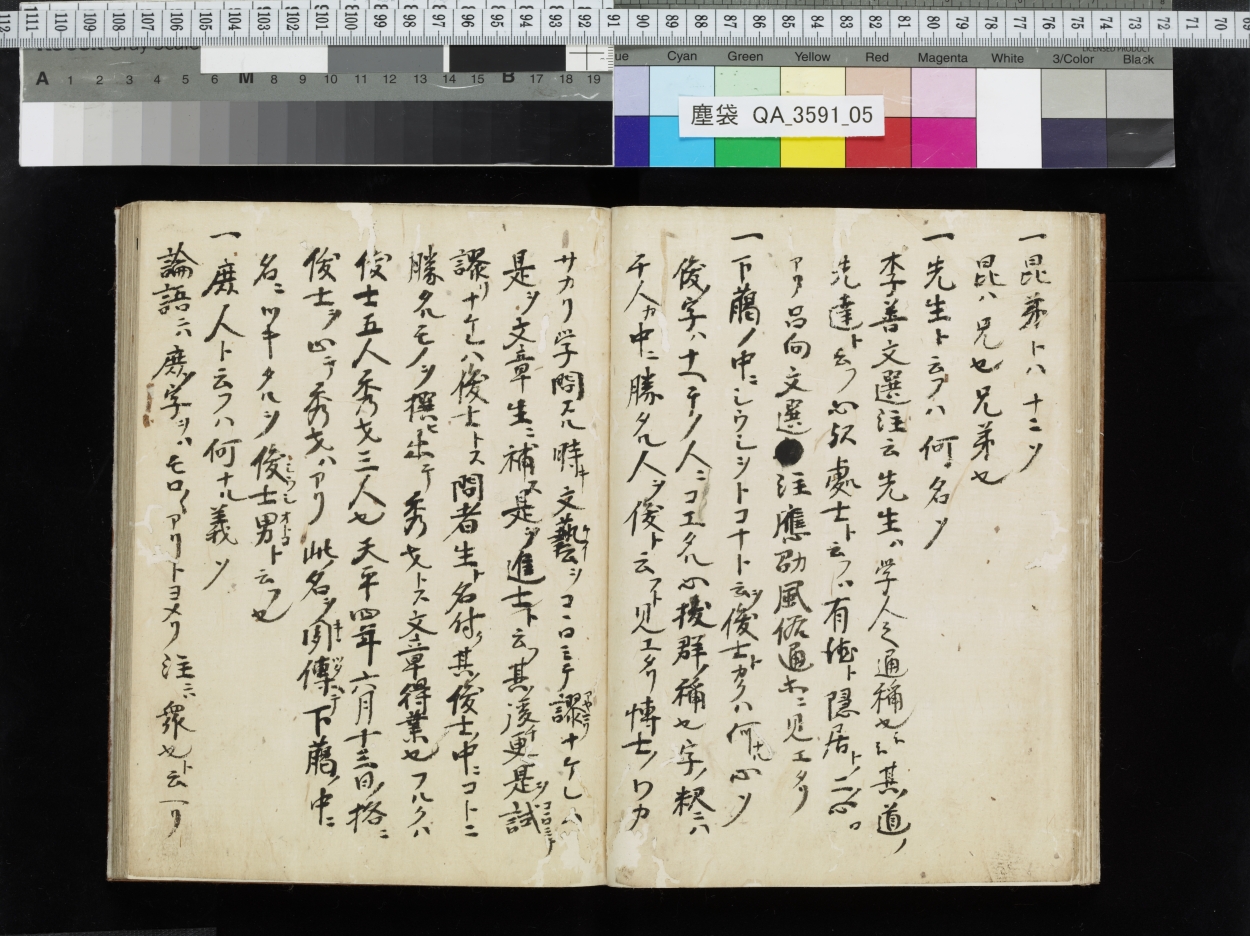 塵袋 QA_3591_05
Cyan Green Yellow Red Magenta White 3/Color Black
A 1 2 3 4 5 6 M 8 9 10 11 12 13 14 15 B 17 18 19
一昆弟トハ 十ニソ
昆ハ兄也兄弟也
一先生ト云フハ何ノ名ソ
李善文選注云先生ハ学人之通稱也 其道ノ
先達ト云フ心歟處士ト云フハ有徳ト隠居トノ二心
アリ呂向文選 注應劭風俗通ニ見エタリ
一下藹ノ中ニシウレシトコナトヲ云俊士トカクハ何ナル心ソ
俊ノ字ハ十ヘテノ人ニコエタル心抜群ノ稱也字ノ釈ニハ
千人カ中ニ勝タル人ヲ俊ト云フト見エタリ博士ノワカ
サカリ学問スル時キ文藝ヲココロミテ謬ナケレハ
是ヲ文章生ニ補ス是ヲ進士ト云其後更是試
謬リナケレハ俊士トス問者生ト名付ク其俊士ノ中ニコトニ
勝タルモノヲ撰ヒ出テ秀才トス文章得業也フルクハ
俊士五人秀才三人也天平四年六月十三日ノ格ニ
俊士ヲ止テ秀才ハアリ此ノ名ヲ聞キ傳テ下藹ノ中ニ
名ニツキタルヲ俊士男ト云フ也
一庶人ト云フハ何ナル義ソ
論語ニハ庶ノ字ヲハモロ〱アリトヨメリ注ニハ衆也ト云ヘリ